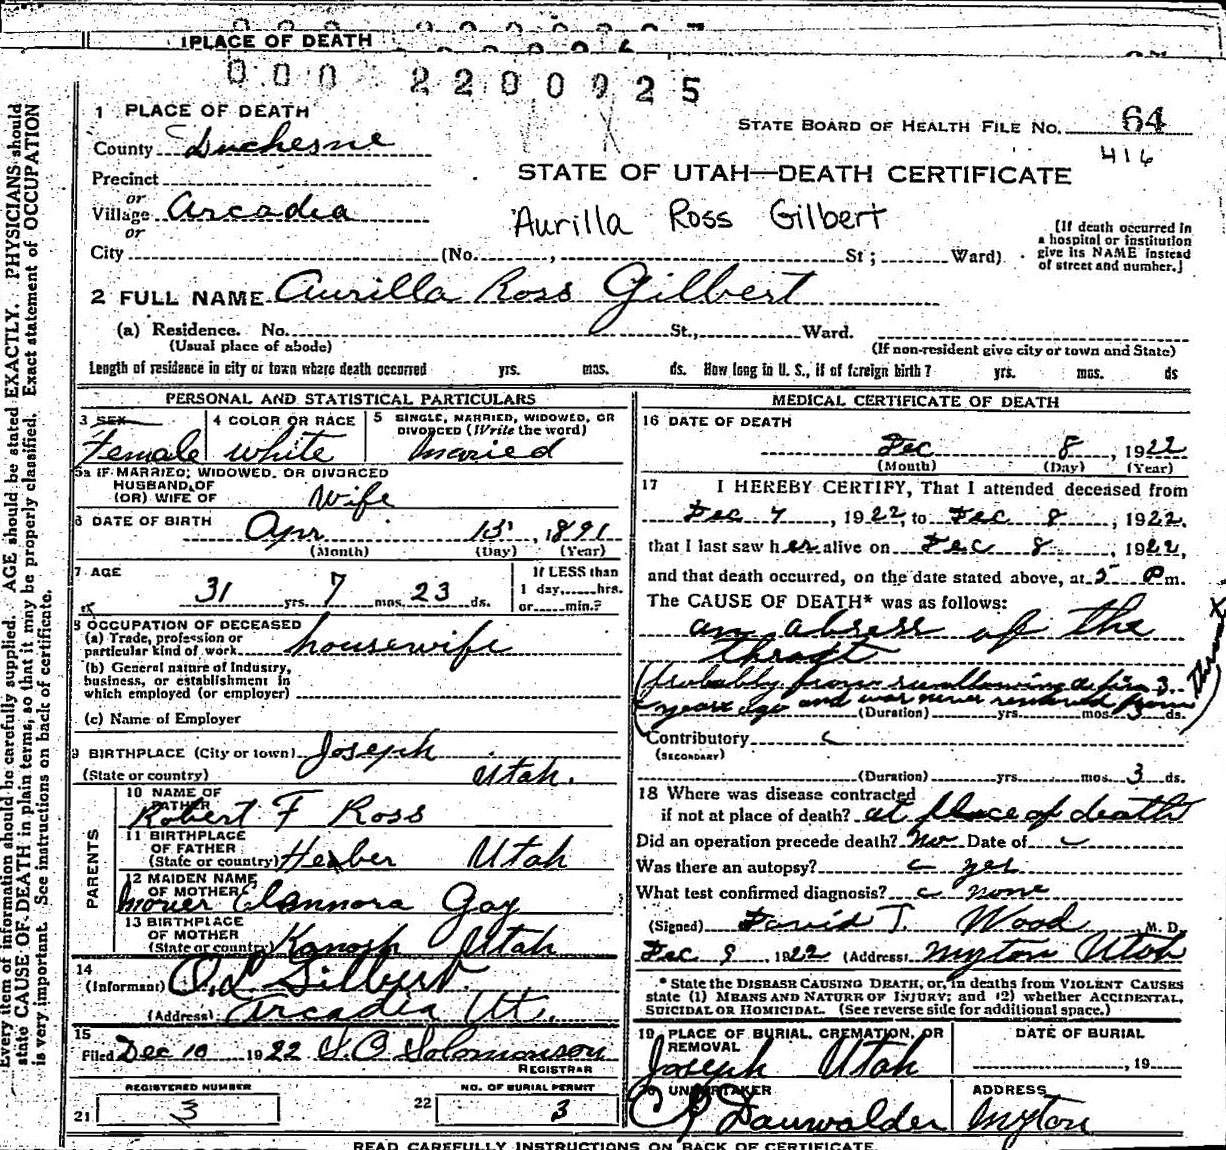 1PLACE OF DEATH
000 2200925
1 PLACE OF DEATH
STATE BOARD OF HEALTH FILE NO. 64
416
County Duchesne
Precinct
STATE OF UTAH—DEATH CERTIFICATE
or
Village Arcadia
or
Aurilla Ross Gilbert
City (No. , St; Ward)
[If death occurred in
a hospital or institution
give its NAME instead
of street and number.]
2 FULL NAME Aurilla Ross Gilbert
(a) Residence. No. St., Ward.
(Usual place of abode)
(If non-resident give city or town and State)
Length of residence in city or town where death occurred yrs. mos. ds. How long in U. S., if of foreign birth? yrs. mos. ds
PERSONAL AND STATISTICAL PARTICULARS
3 SEX
Female
4 COLOR OR RACE
white
5 SINGLE, MARRIED, WIDOWED, OR
DIVORCED (Write the word)
maried
5a IF MARRIED, WIDOWED, OR DIVORCED
HUSBAND OF
(OR) WIFE OF Wife
6 DATE OF BIRTH Apr 15, 1891
(Month) (Day) (Year)
7 AGE
31 yrs. 7 mos. 23 ds.
If LESS than
1 day,......hrs.
or......min.?
8 OCCUPATION OF DECEASED
(a) Trade, profession or
particular kind of work housewife
(b) General nature of Industry,
business, or establishment in
which employed (or employer)
(c) Name of Employer
9 BIRTHPLACE (City or town) Joseph
(State or country) Utah.
PARENTS
10 NAME OF
FATHER
Robert F Ross
11 BIRTHPLACE
OF FATHER
(State or country) Heber Utah
12 MAIDEN NAME
OF MOTHER
Elannora Gay
13 BIRTHPLACE
OF MOTHER
(State or country) Kanosh Utah
14
(Informant) O. L. Gilbert.
(Address) Arcadia Ut.
15
Filed Dec 10 1922 S. O Solomonson
REGISTRAR
REGISTERED NUMBER
21 3
NO. OF BURIAL PERMIT
22 3
MEDICAL CERTIFICATE OF DEATH
16 DATE OF DEATH
Dec 8, 1922
(Month) (Day) (Year)
17 I HEREBY CERTIFY, That I attended deceased from
Dec 7, 1922, to Dec 8, 1922.
that I last saw her alive on Dec 8, 1922,
and that death occurred, on the date stated above, at 5 Pm.
The CAUSE OF DEATH* was as follows:
an absess of the
throat
(Probably from swallowing a pin 3
years ago and was never removed from
throat)
(Duration) yrs. mos. 3 ds.
Contributory c
(SECONDARY)
(Duration) yrs. mos. 3 ds.
18 Where was disease contracted
if not at place of death? at place of death
Did an operation precede death? No Date of c
Was there an autopsy? c yes
What test confirmed diagnosis? c none
(Signed) David T. Wood M. D.
Dec 9 1922 (Address) Myton Utah
* State the DISEASE CAUSING DEATH, or, in deaths from VIOLENT CAUSES
state (1) MEANS AND NATURE OF INJURY; and (2) whether ACCIDENTAL,
SUICIDAL OR HOMICIDAL. (See reverse side for additional space.)
19 PLACE OF BURIAL, CREMATION, OR
REMOVAL
Joseph Utah
DATE OF BURIAL
, 19
20 UNDERTAKER
Dauwalder
ADDRESS
Myton
READ CAREFULLY INSTRUCTIONS ON BACK OF CERTIFICATE.
Every item of information should be carefully supplied. AGE should be stated EXACTLY. PHYSICIANS should
state CAUSE OF DEATH in plain terms, so that it may be properly classified. Exact statement of OCCUPATION
is very important. See instructions on back of certificate.